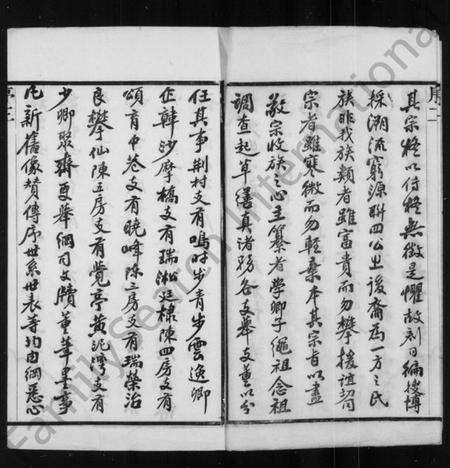 序二
其宗経以付経無徵是懼故刻日編搜博
採溯流窮源聨四公之後裔為一方之民
族非我族類者雖富貴而勿攀援誼切同
宗者雖寒微而勿輕棄本其宗旨以盡
敬宗收族之心主纂者學卿子繩祖念祖
調查起草繕真諸務各支舉支董以分
任其事荆村支有鳴時步青步雲逸卿
韓沙摩橋支有瑞淞廷棣陳四房支有
頌育中巷支有曉峰陳二房支有瑞榮治
良攀仙陳五房支有覺亭黄泥灣支有
少卿聚齋更舉綱司文牘董筆墨事
凡新舊像贊傳序世系世表等均由綱悉心
序三
FamilySearch International